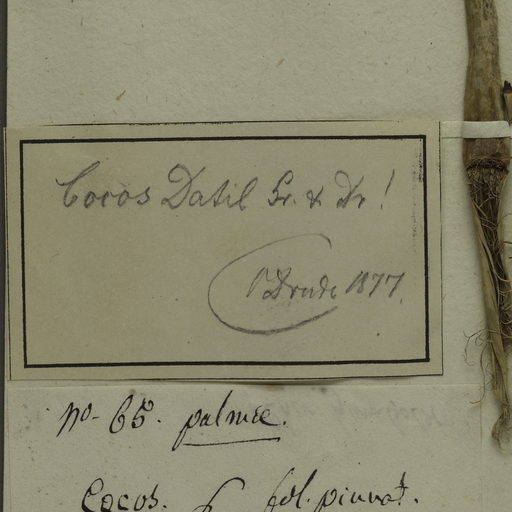 Cocos Datil Gr. & Dr!
O Drude 1877.
no- 65. palmæ.
Cocos. fol. pinnat.